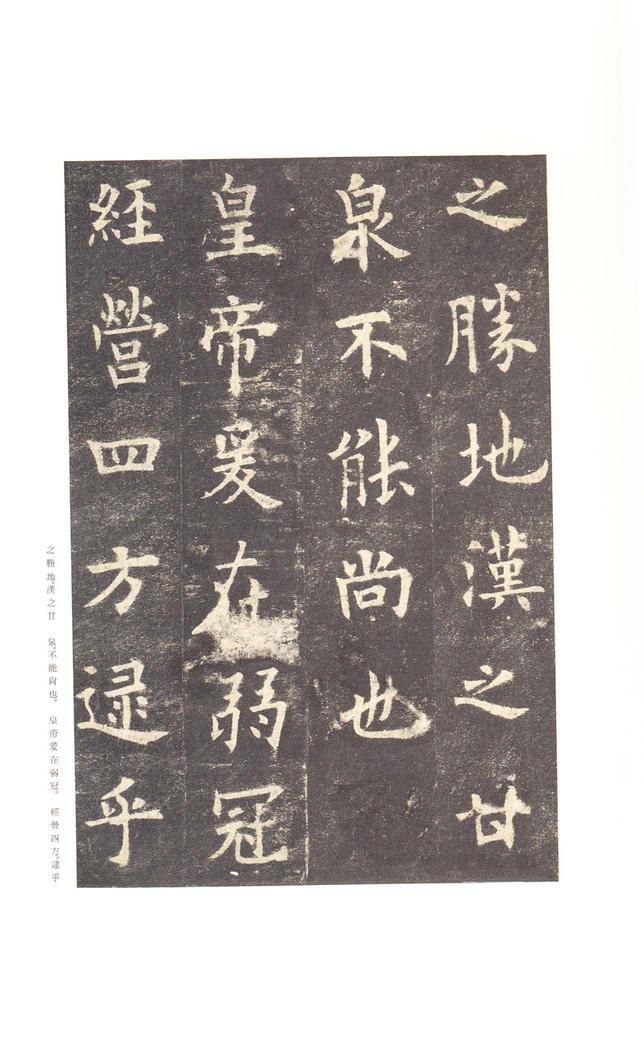 之勝地漢之甘
泉不能尚也
皇帝爰在弱冠
經營四方逯乎
之勝地。漢之甘　泉。不能尙也。　皇帝爰在弱冠。　經營四方。逮乎